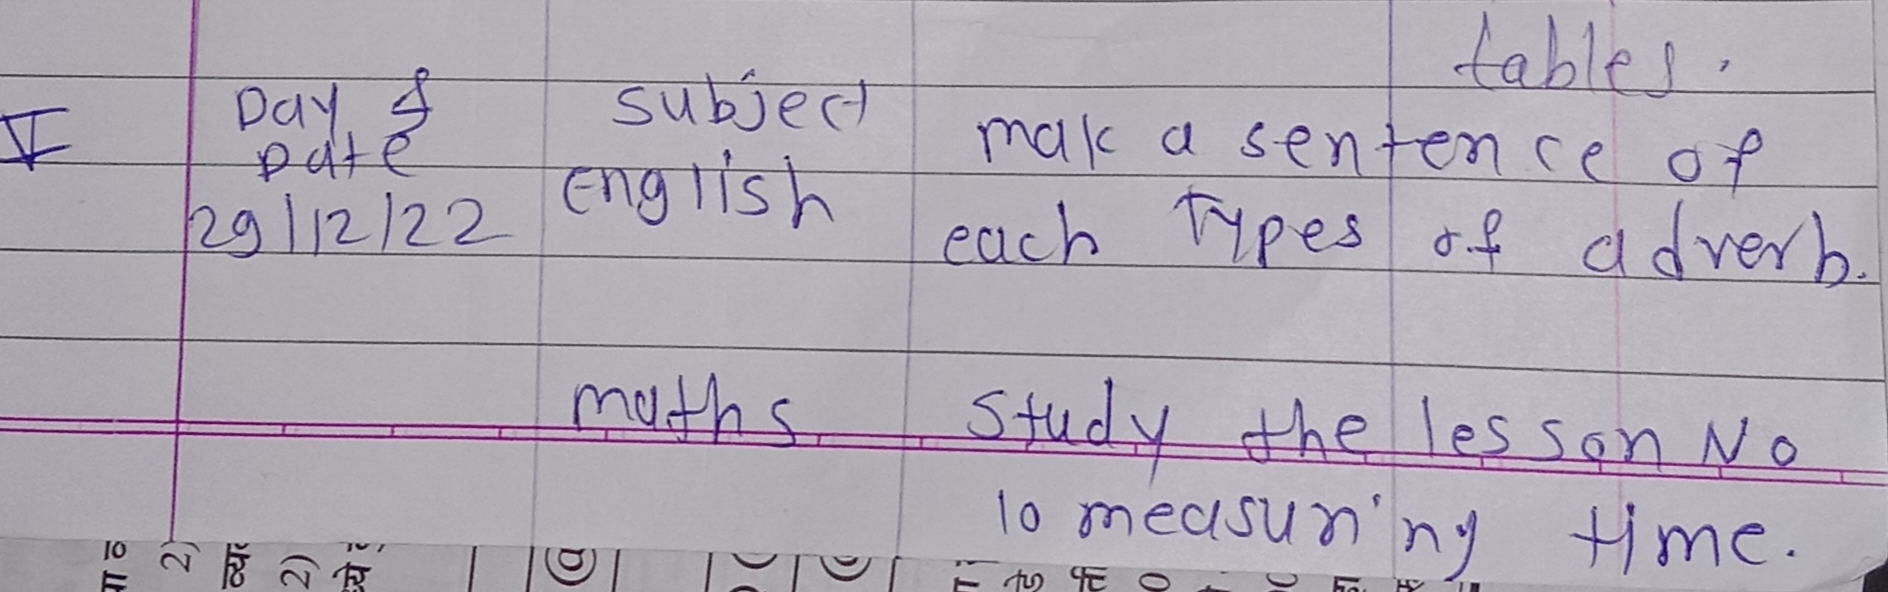 tables.
V Day & subject
Date
make a sentence of
29/12/22 English each Types of adverb.
maths study the lesson No
10 measuring time.